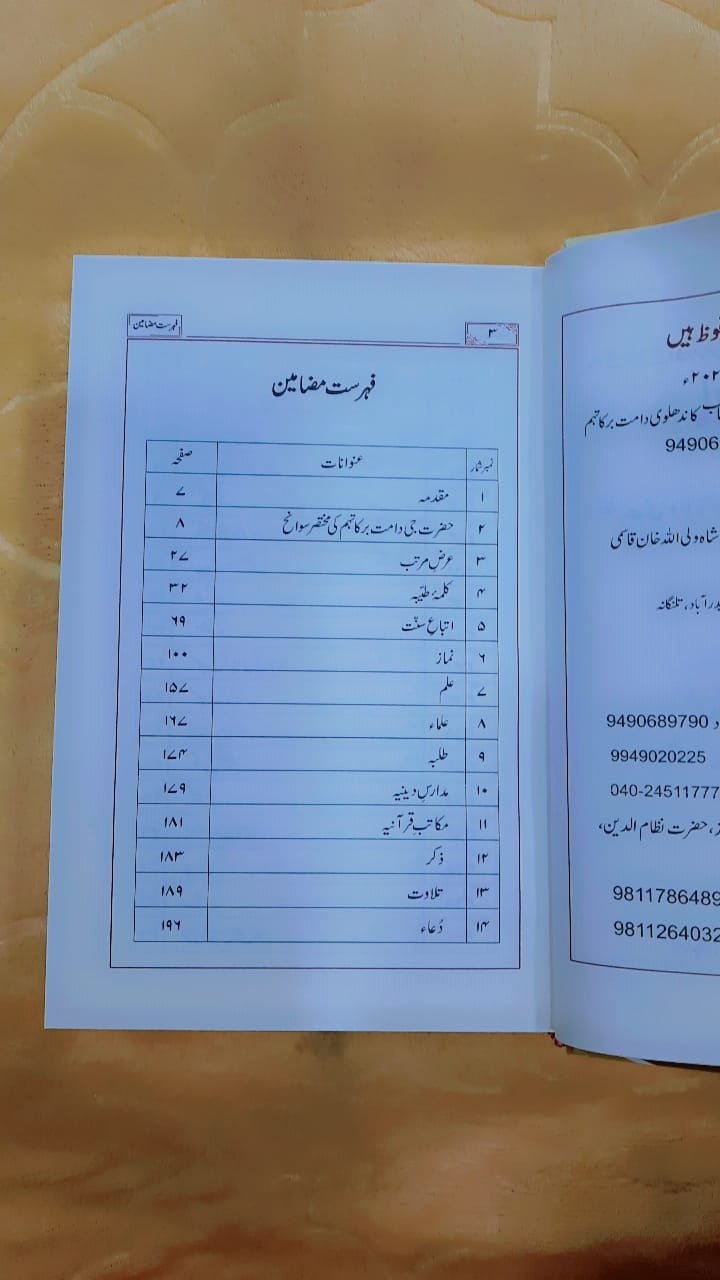 ۳
فہرست مضامین
فہرست مضامین
نمبر شمار عنوانات صفحہ
۱ مقدمہ ۷
۲ حضرت جی دامت برکاتہم کی مختصر سوانح ۸
۳ عرضِ مرتب ۲۷
۴ کلمۂ طیّبہ ۳۲
۵ اتباعِ سنّت ۶۹
۶ نماز ۱۰۰
۷ علم ۱۵۷
۸ علماء ۱۶۷
۹ طلبہ ۱۷۴
۱۰ مدارسِ دینیہ ۱۷۹
۱۱ مکاتبِ قرآنیہ ۱۸۱
۱۲ ذکر ۱۸۳
۱۳ تلاوت ۱۸۹
۱۴ دُعاء ۱۹۶
ہیں
کاندھلوی دامت برکاتہم
94906
شاہ ولی اللہ خان قاسمی
تلنگانہ
9490689790
9949020225
040-24511777
حضرت نظام الدین،
9811786489
9811264032